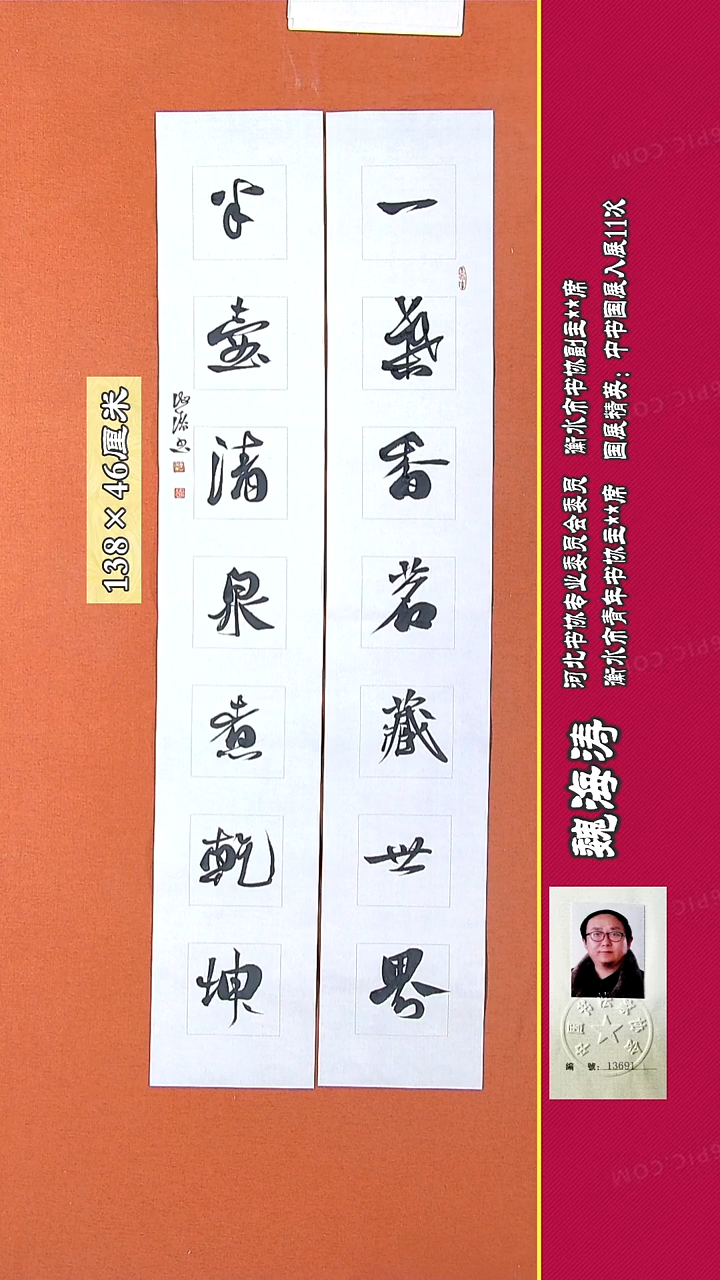 一葉香茗藏世界
半壺清泉煮乾坤
138×46厘米
魏海涛
河北书协专业委员会委员 衡水市书协副主**席
衡水市青年书协主**席 国展精英：中书国展入展11次
编 號：13691